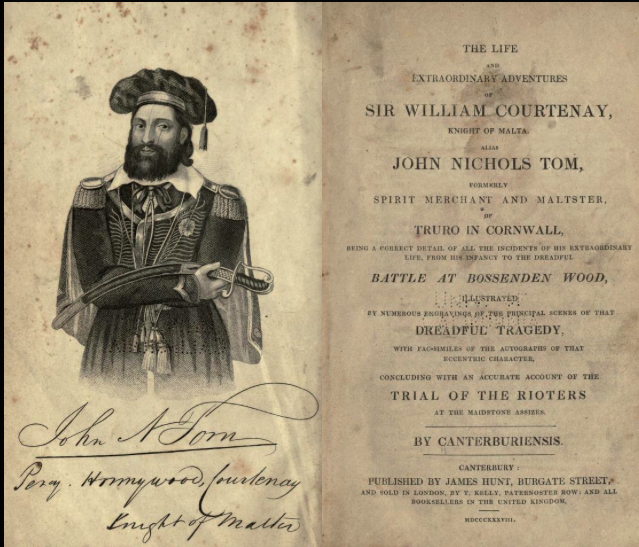 John N Tom
Percy. Honnywood, Courtenay
Knight of Malta
THE LIFE
AND
EXTRAORDINARY ADVENTURES
OF
SIR WILLIAM COURTENAY,
KNIGHT OF MALTA.
ALIAS
JOHN NICHOLS TOM,
FORMERLY
SPIRIT MERCHANT AND MALTSTER,
OF
TRURO IN CORNWALL,
BEING A CORRECT DETAIL OF ALL THE INCIDENTS OF HIS EXTRAORDINARY
LIFE, FROM HIS INFANCY TO THE DREADFUL
BATTLE AT BOSSENDEN WOOD,
ILLUSTRATED
BY NUMEROUS ENGRAVINGS OF THE PRINCIPAL SCENES OF THAT
DREADFUL TRAGEDY,
WITH FAC-SIMILES OF THE AUTOGRAPHS OF THAT
ECCENTRIC CHARACTER,
CONCLUDING WITH AN ACCURATE ACCOUNT OF THE
TRIAL OF THE RIOTERS
AT THE MAIDSTONE ASSIZES.
BY CANTERBURIENSIS.
CANTERBURY:
PUBLISHED BY JAMES HUNT, BURGATE STREET,
AND SOLD IN LONDON, BY T. KELLY, PATERNOSTER ROW; AND ALL
BOOKSELLERS IN THE UNITED KINGDOM.
MDCCCXXXVIII.